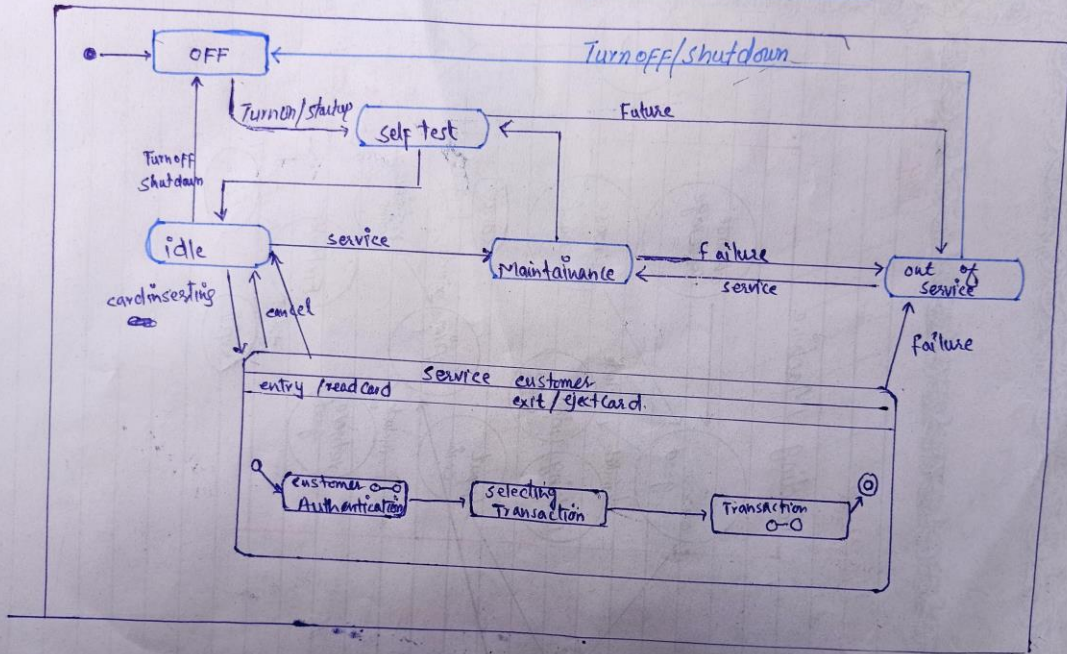 OFF
Turnoff/shutdown
Turnon/startup
self test
Future
Turnoff
Shutdown
idle
service
Maintainance
failure
service
out of
service
cardinserting
cancel
failure
Service customer
entry /readcard
exit / ejectcard.
customer
Authentication
selecting
Transaction
Transaction